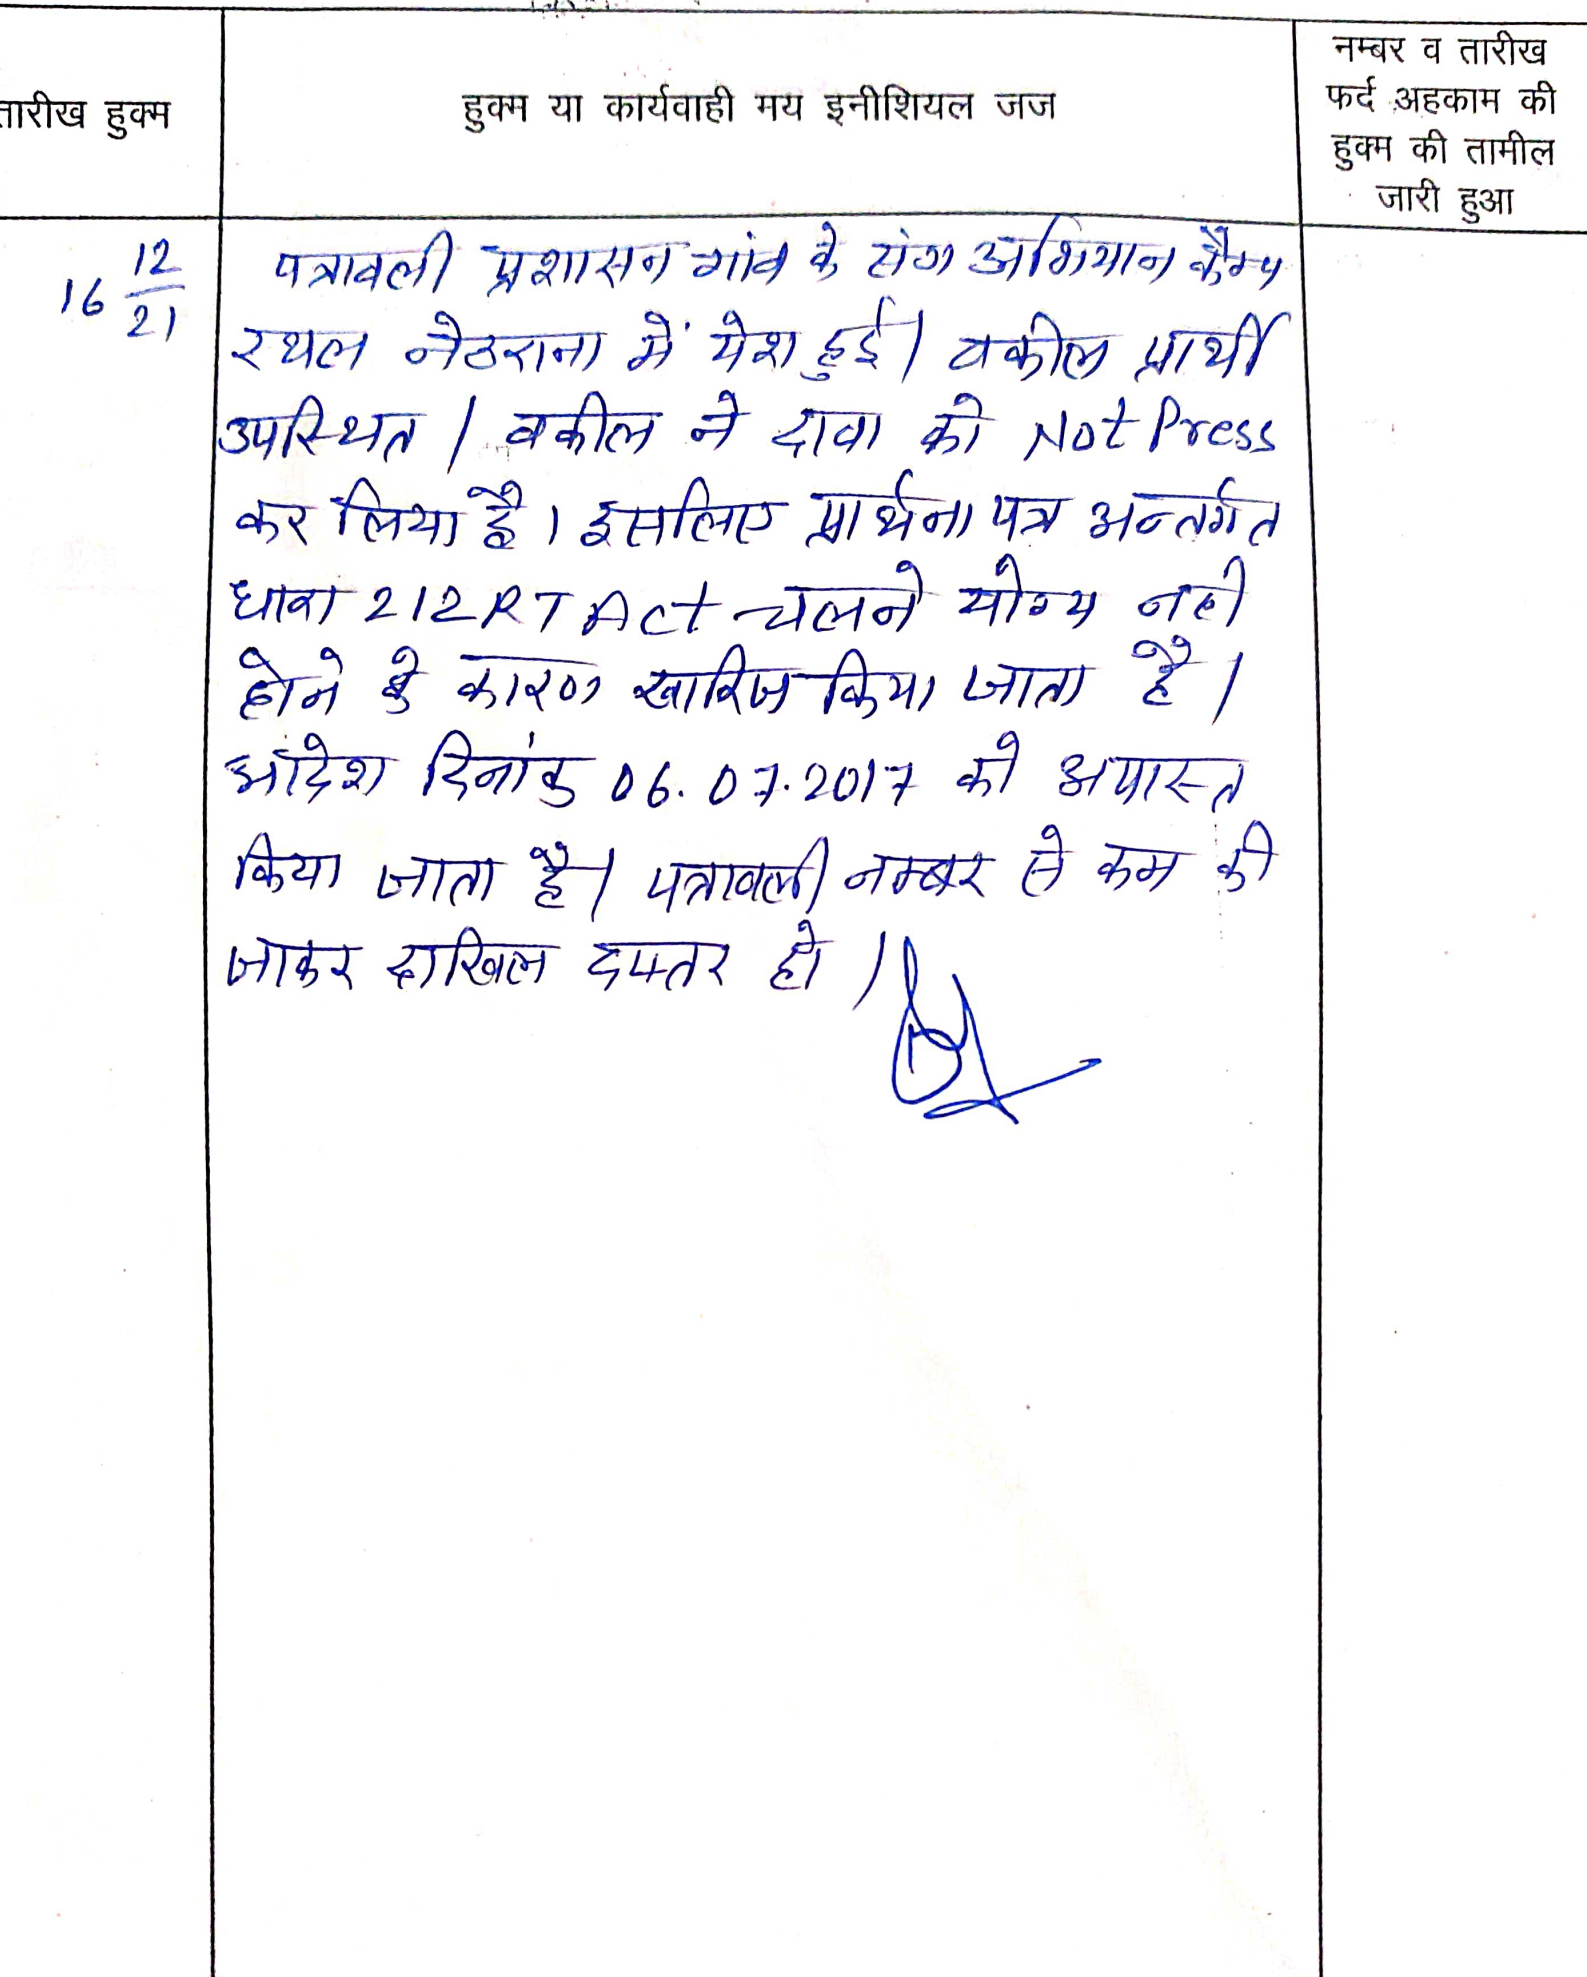 तारीख हुक्म
हुक्म या कार्यवाही मय इनीशियल जज
नम्बर व तारीख
फर्द अहकाम की
हुक्म की तामील
जारी हुआ
16 12/21
पत्रावली प्रशासन गांव के संग अभियान कैम्प
स्थल नेठराना में पेश हुई। वकील प्रार्थी
उपस्थित। वकील ने दावा को Not Press
कर लिया है। इसलिए प्रार्थना पत्र अन्तर्गत
धारा 212 RT Act चलने योग्य नही
होने के कारण खारिज किया जाता है।
आदेश दिनांक 06.07.2017 को अपास्त
किया जाता है। पत्रावली नम्बर से कम की
जाकर दाखिल दफ्तर हो।